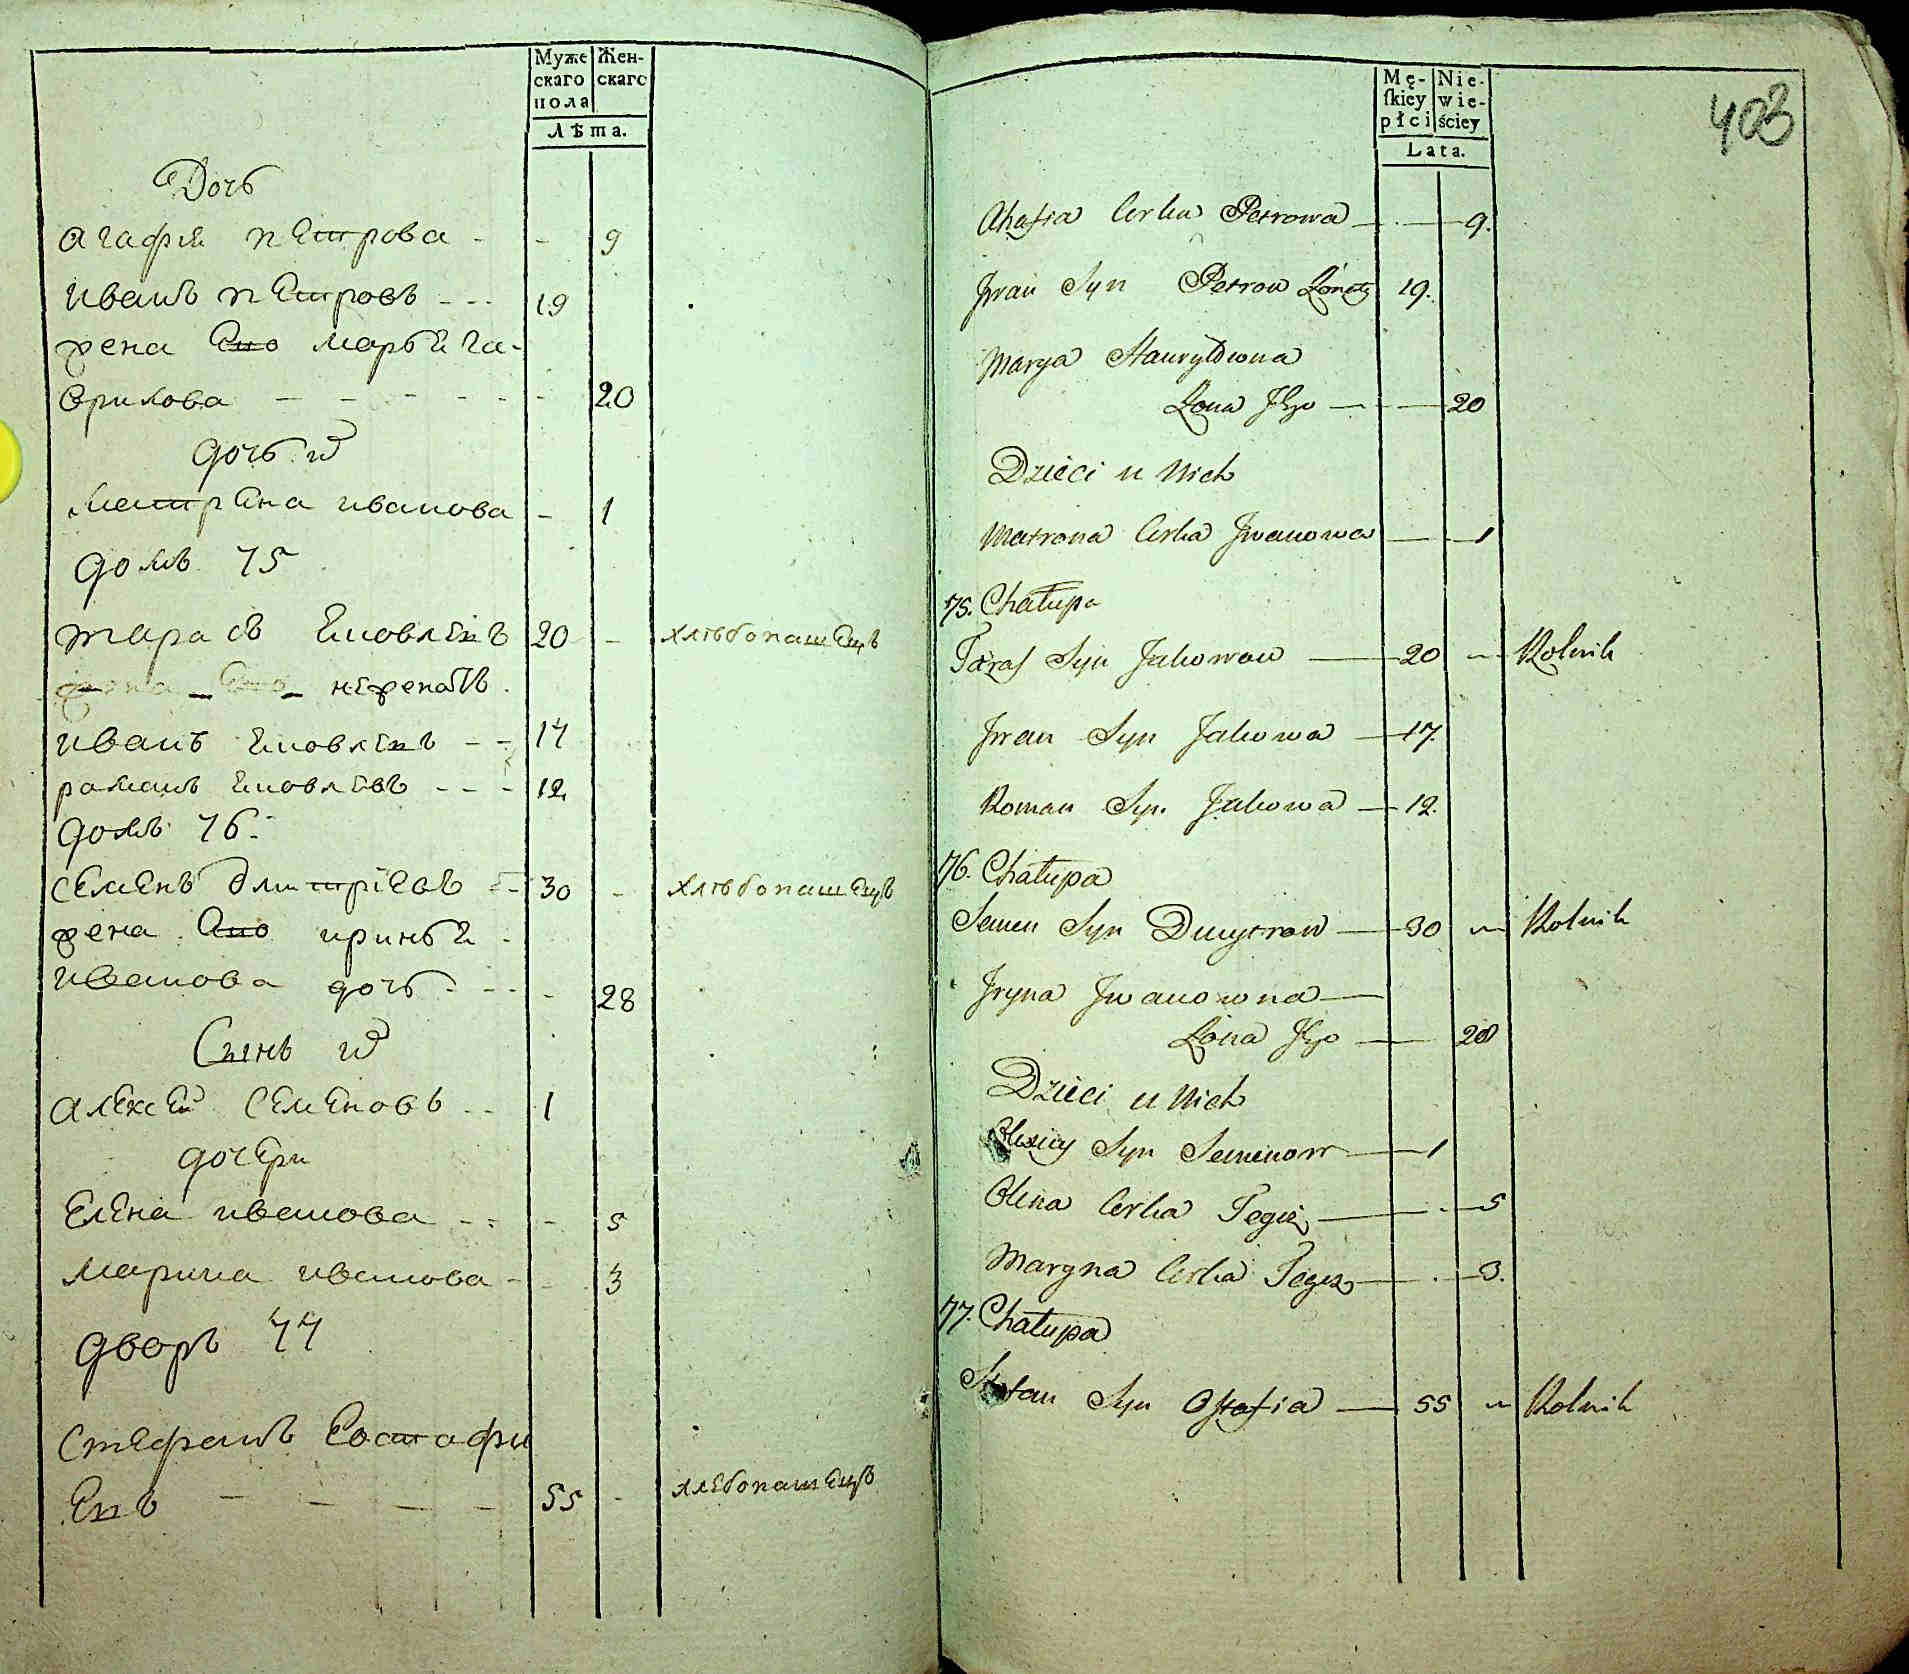 Муже
скаго
пола
Жен-
скаго
Лѣта.
Дочь
агафия петрова - - 9
иванъ петровъ - - - 19
жена Его марья га-
врилова - - - - - - 20
дочь
матрена иванова - 1
домъ 75
тарасъ Яковлевъ 20 - хлѣбопашецъ
жена Его нежена
иванъ Яковлевъ - - 17
раманъ Яковлевъ - - - 12
домъ 76
семенъ дмитріевъ - 30 - хлѣбопашецъ
жена Его иринья
иванова дочь - - - - 28
Сынь
алексей семеновъ - - 1
дочери
Елена иванова - - - 5
марина иванова - - 3
дворъ 77
стефанъ Еостафи
Евъ - - - - 55 - хлебопашецъ
403
Mę-
ſkiey
płci
Nie-
wie-
ściey
Lata.
Ahafia Corka Petrowa 9.
Jwan Syn Petrow Żonaty 19.
Marya Hawryłowna
Żona Jego 20
Dzieci u Nich
Matrona Corka Jwanowa 1
75. Chałupa
Taras Syn Jakowow 20 Rolnik
Jwan Syn Jakowa 17.
Roman Syn Jakowa 12.
76. Chałupa
Semen Syn Dmytrow 30 Rolnik
Jryna Jwanowna
Żona Jego 28
Dzieci u Nich
Olexiey Syn Semenow 1
Olena Corka Tegoż 5
Maryna Corka Tegoż 3.
77. Chałupa
Stefan Syn Ostafia 55 Rolnik